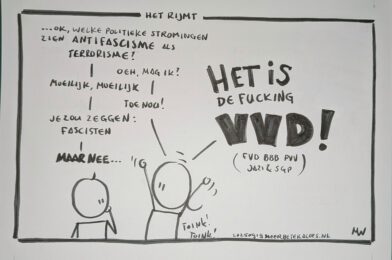 HET RIJMT
...OK, WELKE POLITIEKE STROMINGEN
ZIEN ANTIFASCISME ALS
TERRORISME?
OEH, MAG IK?
MOEILIJK, MOEILIJK
TOE NOU!
JE ZOU ZEGGEN:
FASCISTEN
MAAR NEE...
HET IS
DE FUCKING
VVD!
(FVD BBB PVV
JA21 & SGP)
TOINK!
TOINK!
MW